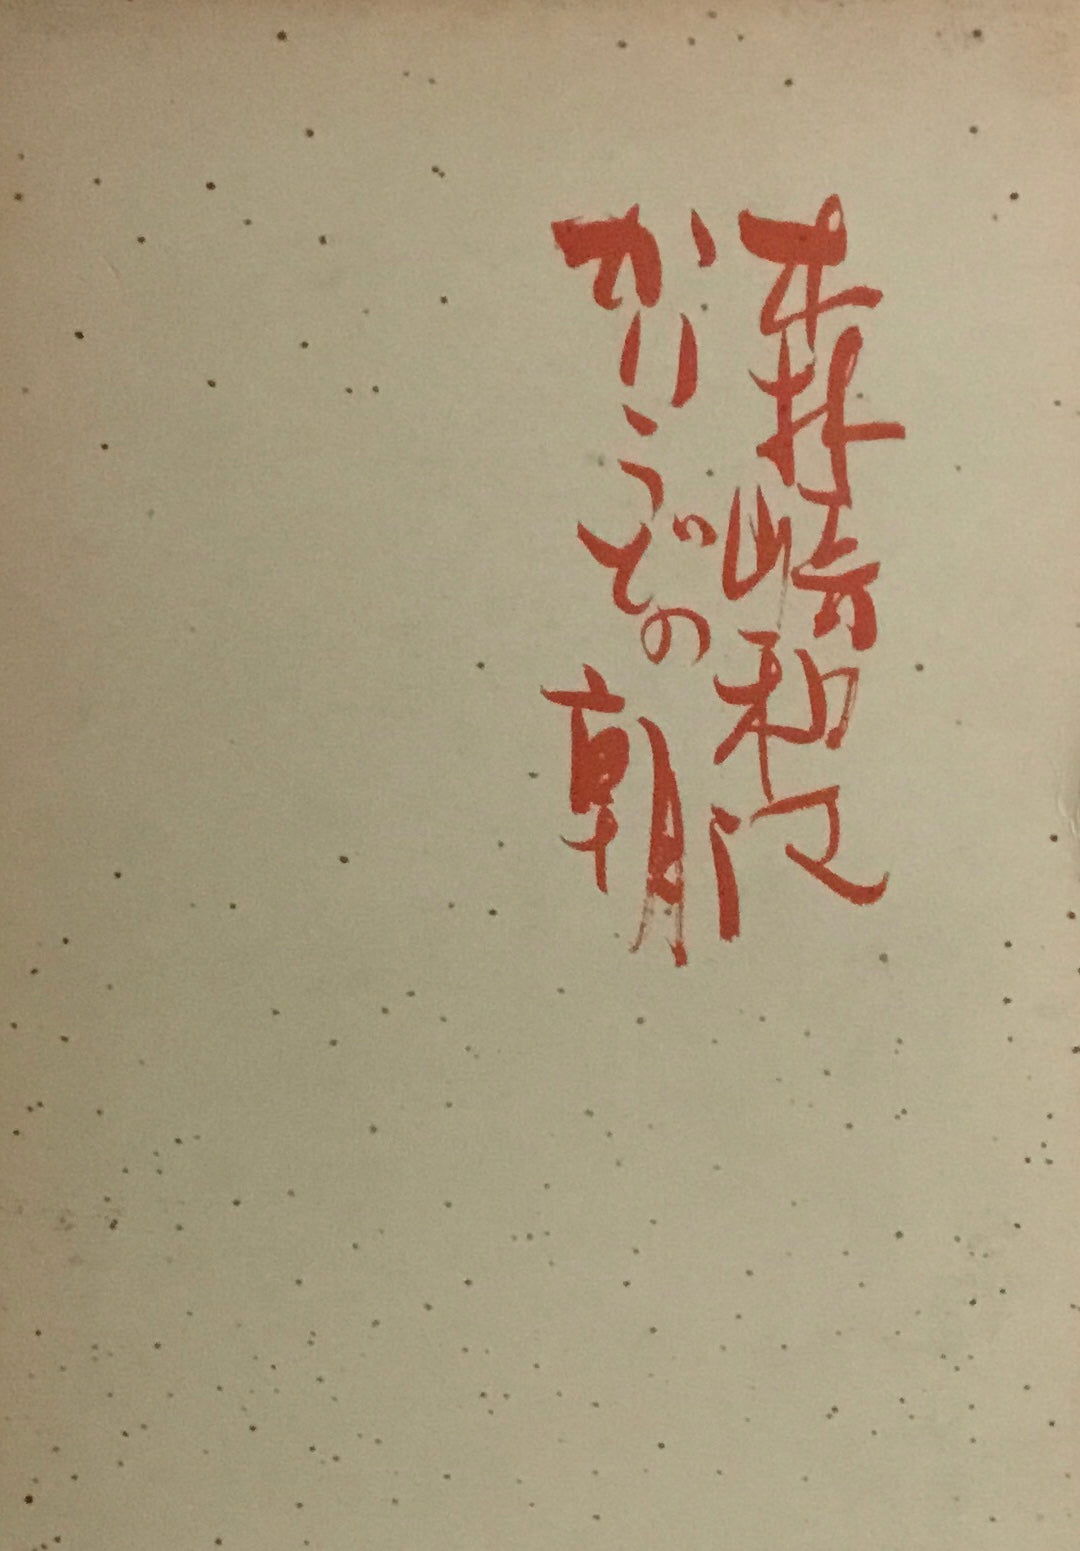 森崎和江
かりうどの朝